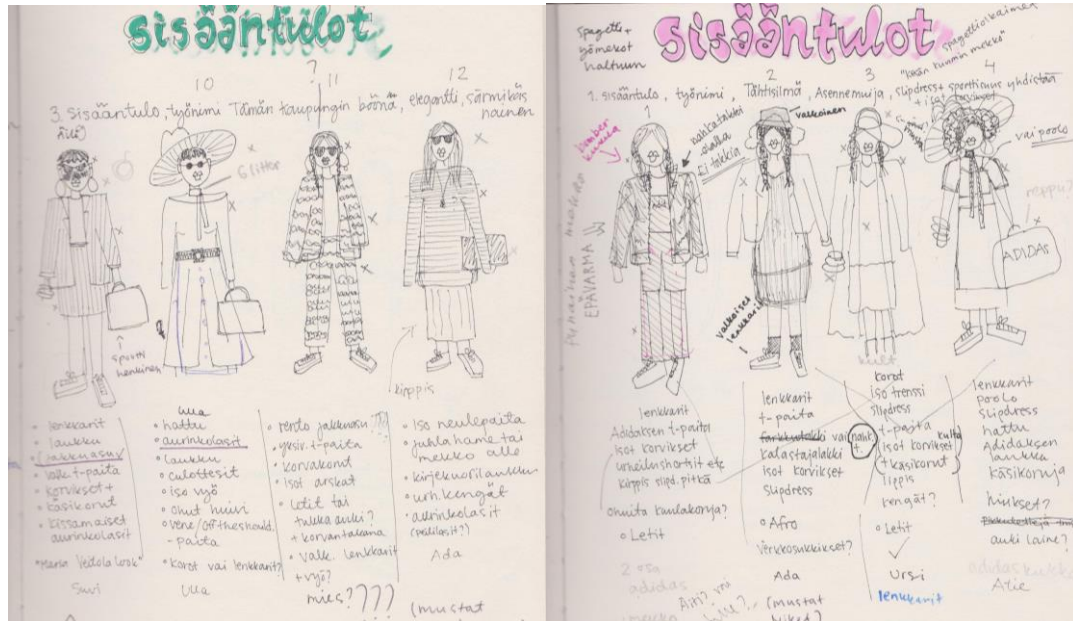 sisääntulot
10
11
12
3. sisääntulo, työnimi Tämän kaupungin böönä, elegantti, särmikäs
nainen
Glitter
sportti
henkinen
kirppis
lenkkarit
laukku
jakkuasu
valk. t-paita
korvikset +
käsikorut
kissamaiset
aurinkolasit
Look"
Suvi
Ulla
hattu
aurinkolasit
laukku
culottesit
iso vyö
ohut huivi
vene/offtheshould.
-paita
korot vai lenkkarit?
Ulla
rento jakkuasu
yksiv. t-paita
korvakorut
isot arskat
letit tai
tukka auki?
+ korvan takana
valk. lenkkarit
+vyö?
mies???
iso neulepaita
juhlahame tai
mekko alle
kirjekuorilaukku
urh.kengät
aurinkolasit
Ada
(mustat
spagetti +
yömekot
haltuun
sisääntulot
1. sisääntulo, työnimi, Tähtisilmä, Asennemuija, slipdress + sporttisuus yhdistää
1
2
3
4
bomber
nahkatakki
olalla
Ei takkia
valkoinen
vai poolo
reppu?
EPÄVARMA
ADIDAS
valkoiset
lenkkarit
!
lenkkarit
Adidaksen t-paita
isot korvikset
urheilushortsit etc
kirppis slipd. pitkä
ohuita kaulakoruja?
Letit
2 osa
adidas
lenkkarit
t-paita
vai
kalastajalakki
isot korvikset
slipdress
Afro
verkkosukkikset?
Ada
(mustat
korot
iso trenssi
slipdress
t-paita
isot korvikset
+ käsikorut
kulta
lippis
kengät?
Letit
Ursi
lenkkarit
lenkkarit
poolo
slipdress
hattu
Adidaksen
laukku
käsikoruja
hiukset?
auki laine?
adidas